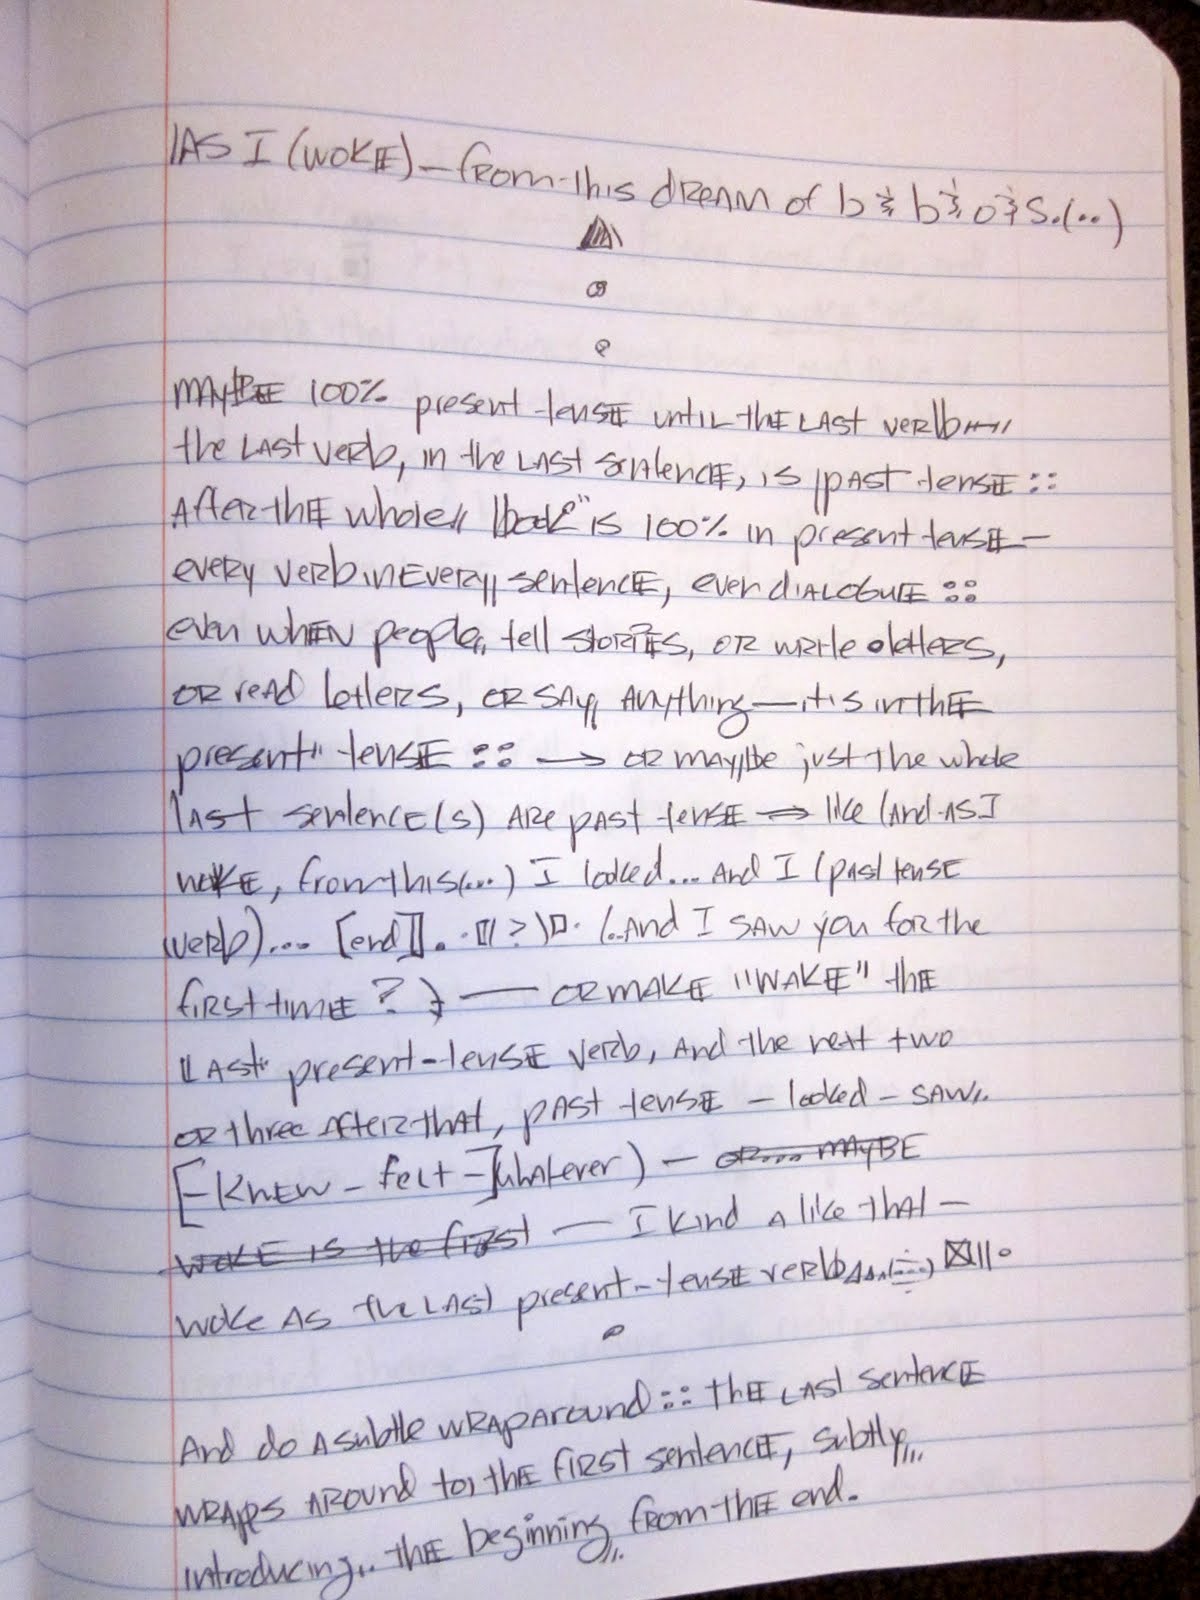 AS I (WOKE) – from this dream of b & b & o & s. (..)
MAYBE 100% present tense until the last verb –
the last verb, in the last sentence, is past tense ::
After the whole "book" is 100% in present tense –
every verb in every sentence, even dialogue ::
even when people, tell stories, or write letters,
or read letters, or say, anything – it's in the
present" tense :: → or maybe just the whole
last sentence(s) are past tense ⇒ like (and as I
woke, from this (...) I looked... And I (past tense
verb)... [end]. . ? ) . (..And I saw you for the
first time? } — or make "wake" the
"last" present-tense verb, and the next two
or three after that, past tense – looked – saw..
[– knew – felt –] whatever) – or... maybe
woke is the first — I kind a like that –
woke as the last present-tense verb
And do a subtle wraparound :: the last sentence
wraps around to, the first sentence, subtly,,,
introducing,, the beginning,,, from the end.